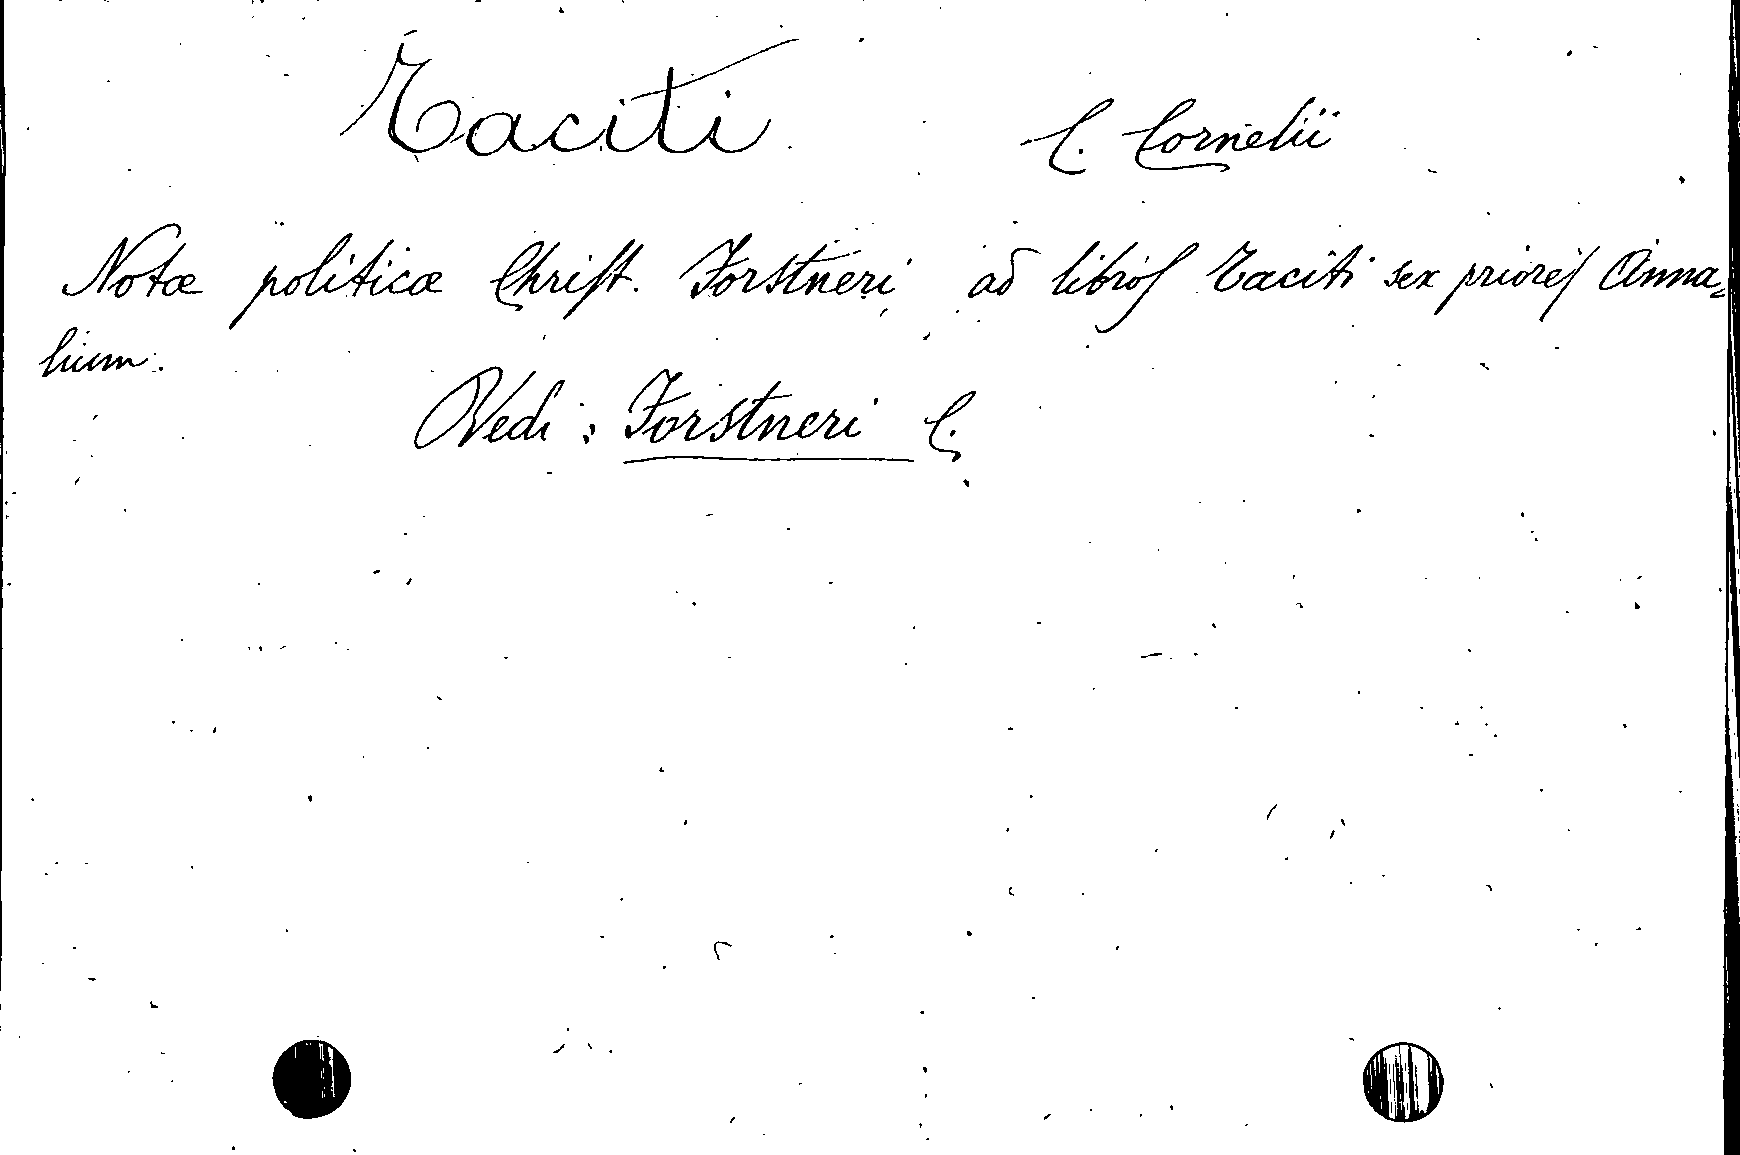 Taciti C. Cornelii
Notæ politicæ Christ. Forstneri ad libros Taciti sex priores Anna=
lium.
Vedi: Forstneri C.